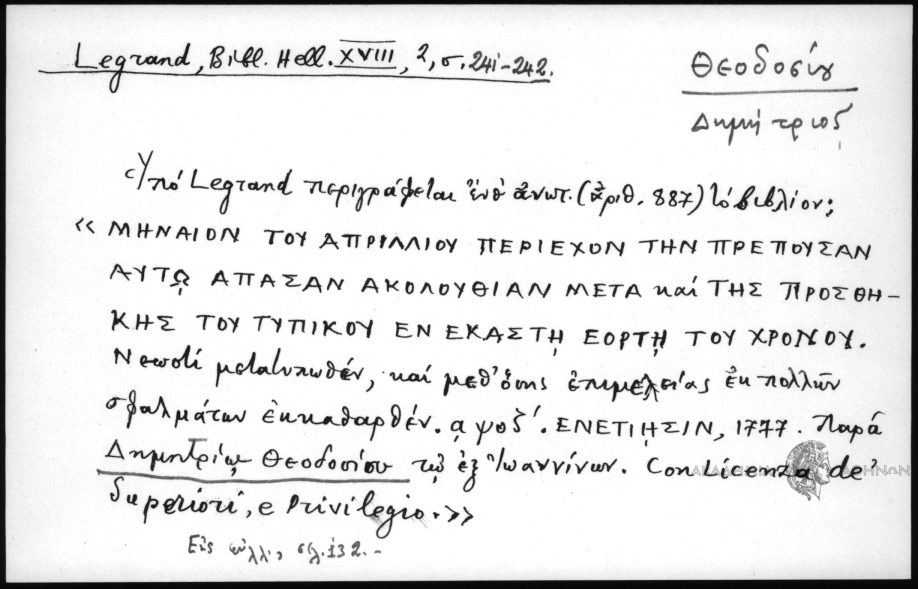 Legrand, Bibl. Hell. XVIII, 2, σ. 241-242.
Θεοδοσίου
Δημήτριος
Ὑπό Legrand περιγράφεται ἔνθ' ἀνωτ. (ἀριθ. 887) τό βιβλίον;
«ΜΗΝΑΙΟΝ ΤΟΥ ΑΠΡΙΛΛΙΟΥ ΠΕΡΙΕΧΟΝ ΤΗΝ ΠΡΕΠΟΥΣΑΝ
ΑΥΤῼ ΑΠΑΣΑΝ ΑΚΟΛΟΥΘΙΑΝ ΜΕΤΑ καί ΤΗΣ ΠΡΟΣΘΗ-
ΚΗΣ ΤΟΥ ΤΥΠΙΚΟΥ ΕΝ ΕΚΑΣΤῌ ΕΟΡΤῌ ΤΟΥ ΧΡΟΝΟΥ.
Νεωστί μετατυπωθέν, καί μεθ' ὅσης ἐπιμελείας ἐκ πολλῶν
σφαλμάτων ἐκκαθαρθέν. αψοζ΄. ΕΝΕΤΙῌΣΙΝ, 1777. Παρά
Δημητρίῳ Θεοδοσίου τῷ ἐξ Ἰωαννίνων. Con Licenza de'
Superiori, e Privilegio.»
Εἰς φύλλ., σελ. 132.-
ΑΚΑΔΗΜΙΑ ΑΘΗΝΩΝ